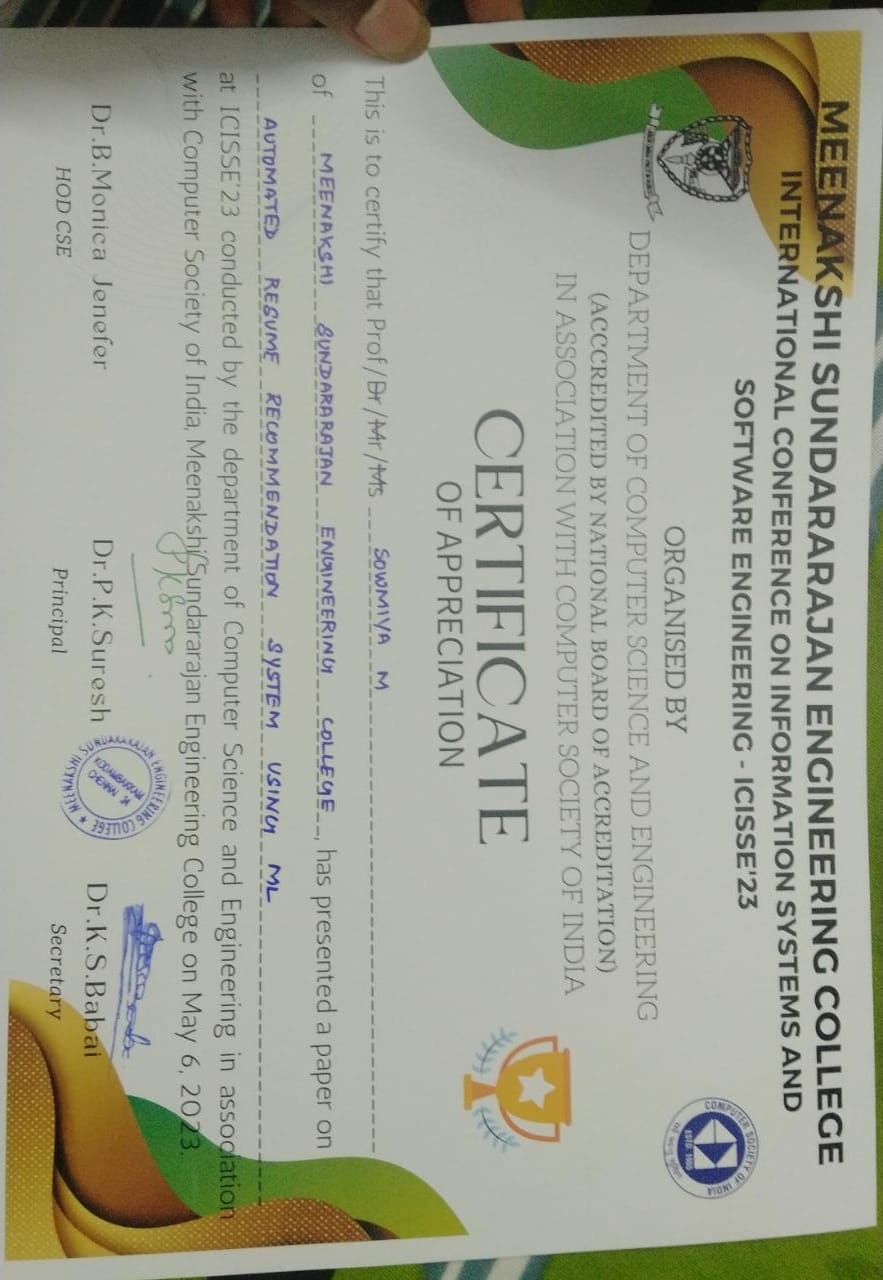 MEENAKSHI SUNDARARAJAN ENGINEERING COLLEGE
INTERNATIONAL CONFERENCE ON INFORMATION SYSTEMS AND
SOFTWARE ENGINEERING - ICISSE'23
COMPUTER SOCIETY OF INDIA
ESTD. 1965
ORGANISED BY
DEPARTMENT OF COMPUTER SCIENCE AND ENGINEERING
(ACCCREDITED BY NATIONAL BOARD OF ACCREDITATION)
IN ASSOCIATION WITH COMPUTER SOCIETY OF INDIA
CERTIFICATE
OF APPRECIATION
This is to certify that Prof/Dr/Mr/Ms SOWMIYA M
of MEENAKSHI SUNDARARAJAN ENGINEERING COLLEGE, has presented a paper on
AUTOMATED RESUME RECOMMENDATION SYSTEM USING ML
at ICISSE'23 conducted by the department of Computer Science and Engineering in association
with Computer Society of India, Meenakshi Sundararajan Engineering College on May 6, 2023.
MEENAKSHI SUNDARARAJAN ENGINEERING COLLEGE
KODAMBAKKAM
CHENNAI 24
Dr.B.Monica Jenefer Dr.P.K.Suresh Dr.K.S.Babai
HOD CSE Principal Secretary